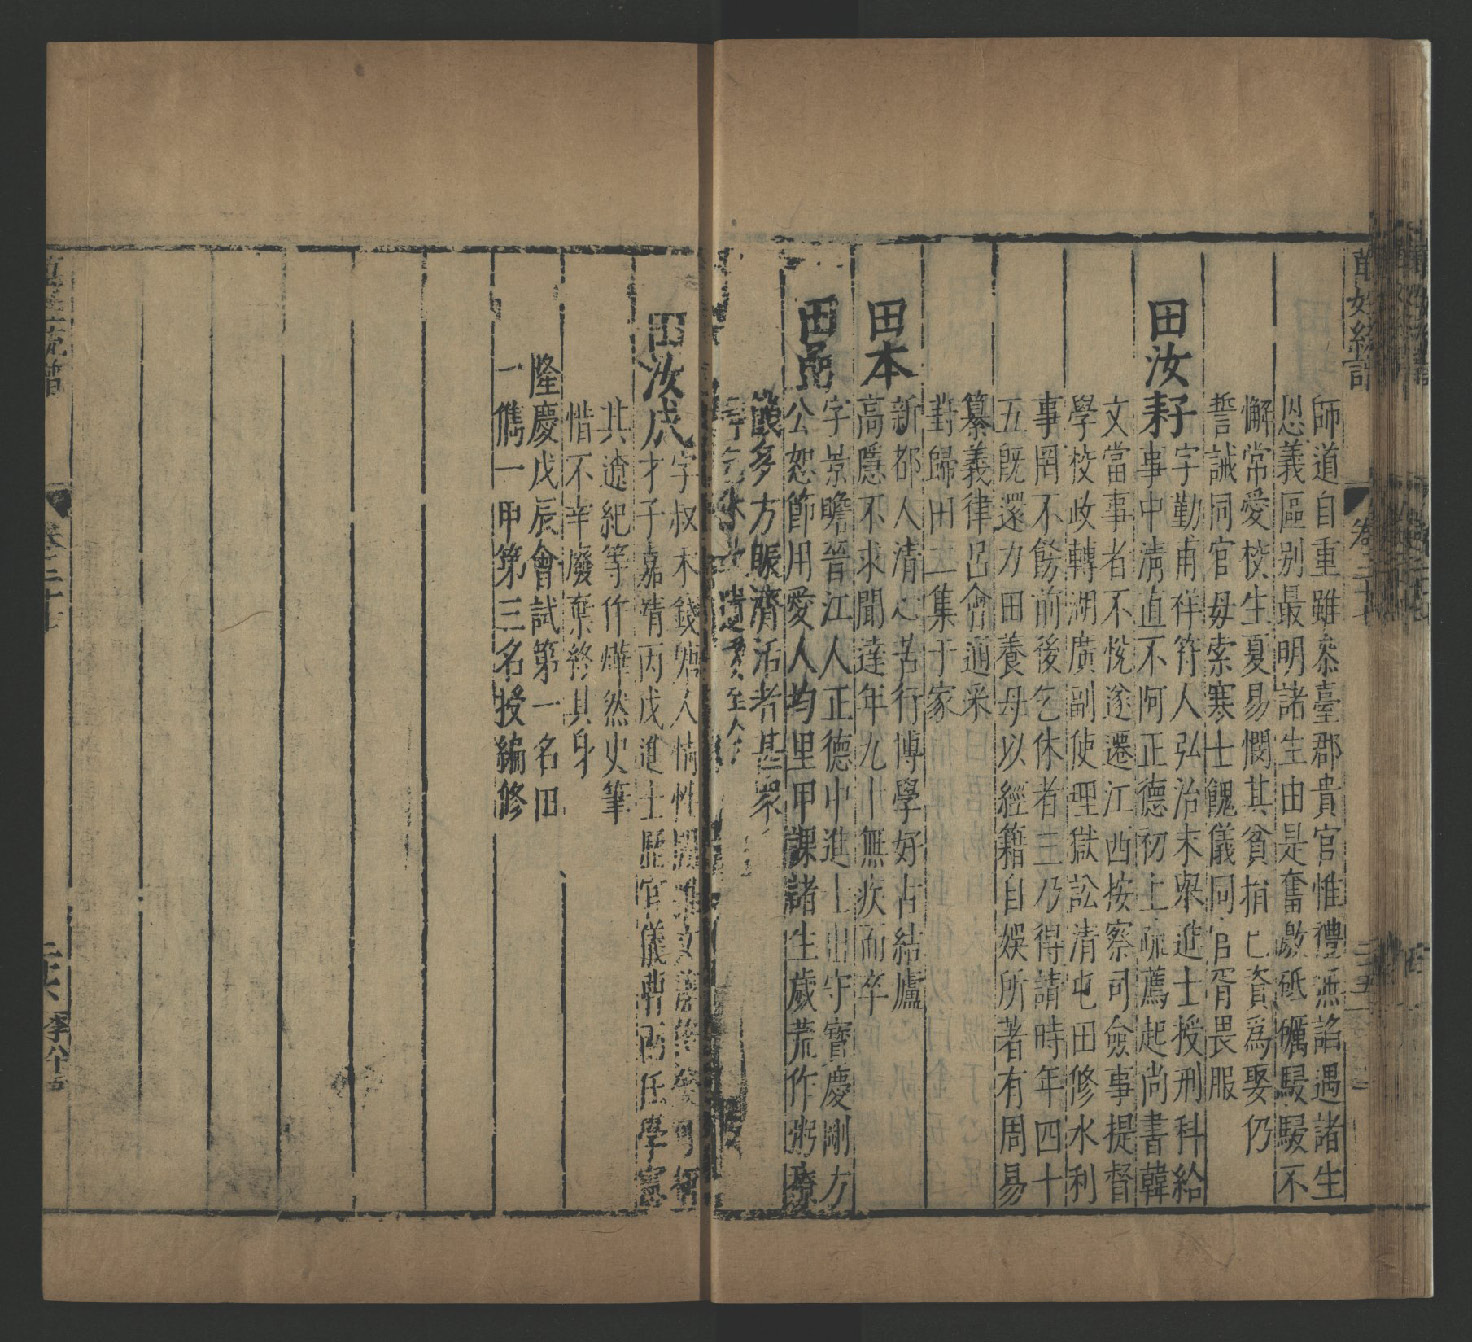 師道自重雖忝臺郡貴官惟禮無諂遇諸生
恩義區別最明諸生由是奮激砥礪駸駸不
懈常愛校生夏易憫其貧捐己資爲娶仍
誓誡同官毋索寒士餽儀同官胥畏服
田汝耔
字勤甫祥符人弘治末舉進士授刑科給
事中清直不阿正德初上疏薦起尚書韓
文當事者不悅遂遷江西按察司僉事提督
學校改轉湖廣副使理獄訟清屯田修水利
事罔不飭前後乞休者三乃得請時年四十
五既還力田養母以經籍自娛所著有周易
纂義律呂會通采
對歸田二集于家
田本
新都人清心苦行博學好古結廬
高隱不求聞達年九十無疾而卒
田
字景瞻晉江人正德中進士出守寶慶剛方
公恕節用愛人均里甲課諸生歲荒作粥療
餓多方賑濟活者甚眾
遺
田汝成
字叔禾錢塘人情性
才子嘉靖丙戌進士歷官儀曹兩任學憲
其遼紀等作燁然史筆
惜不幸廢棄終其身
隆慶戊辰會試第一名田
一儁一甲第三名授編修
卷二十七
李